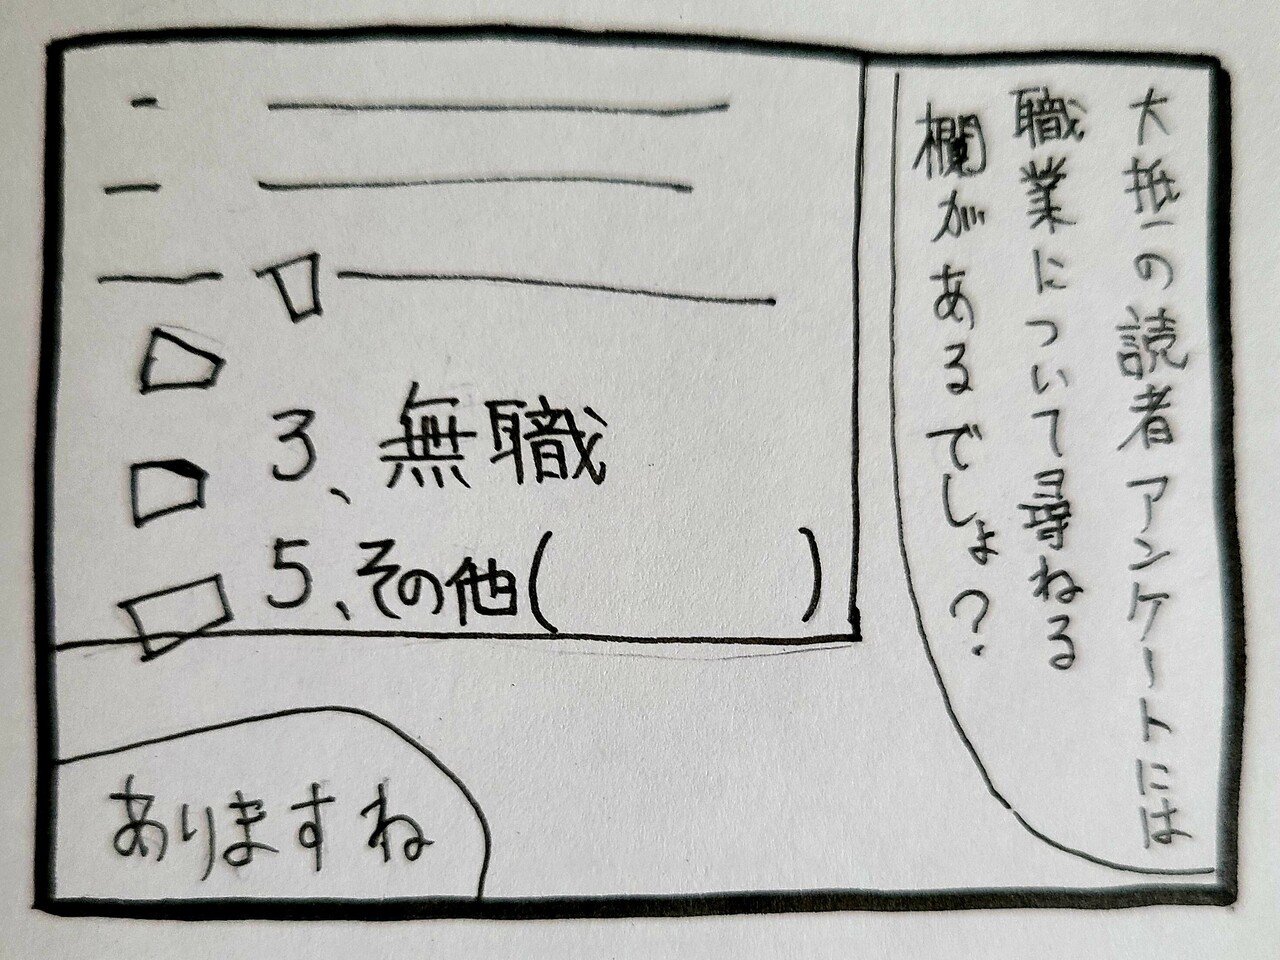 大抵の読者アンケートには
職業について尋ねる
欄があるでしょ？
3、無職
5、その他(　　　)
ありますね